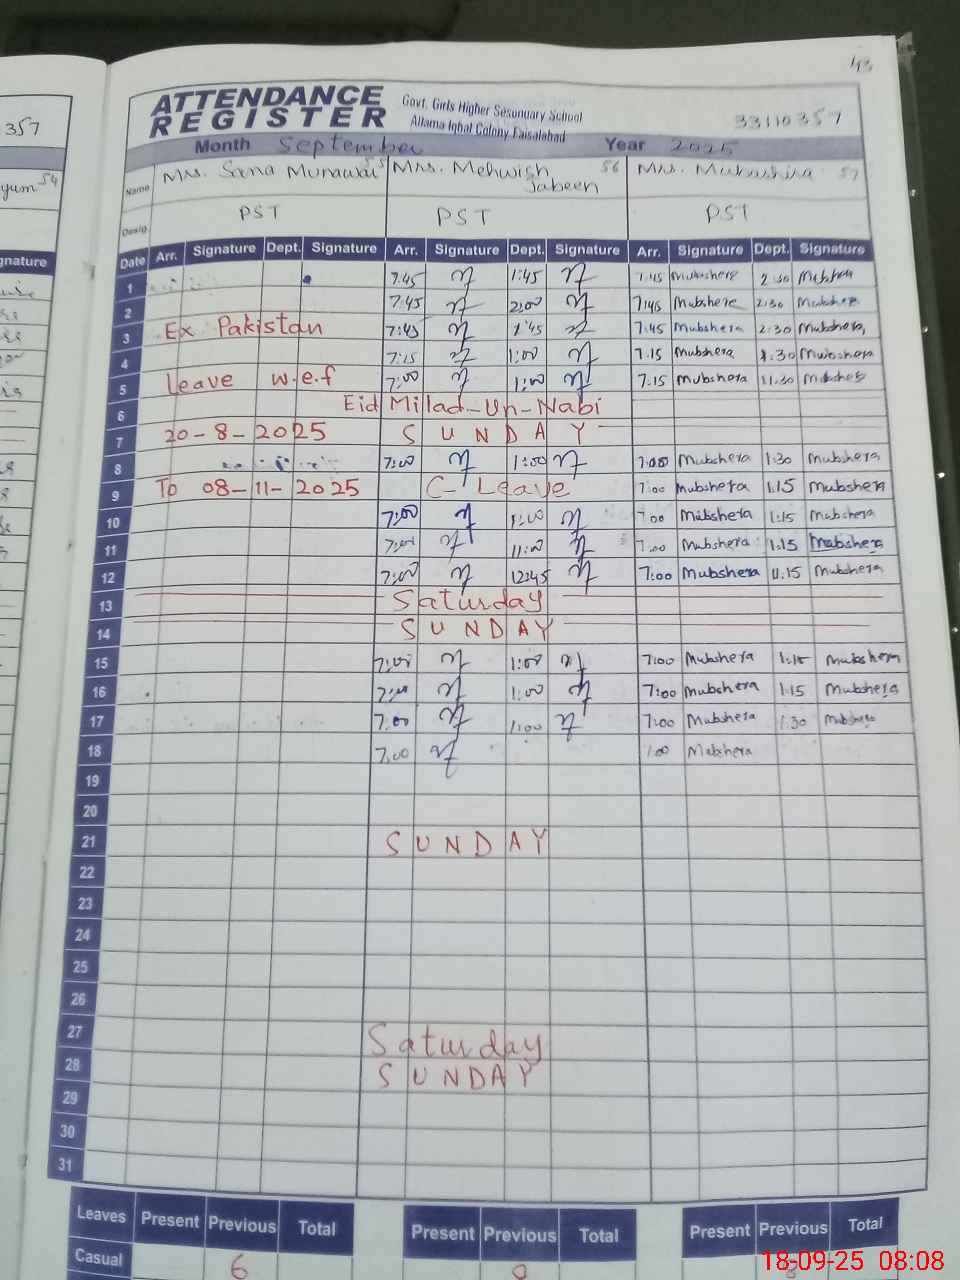 43
357
yum 54
gnature
ATTENDANCE REGISTER
Govt. Girls Higher Sesundary School
Allama Iqbal Colony Faisalabad
33110357
Month September Year 2025
Name Mrs. Sana Munawar 55 Mrs. Mehwish Jabeen 56 Mrs. Mubashira 57
Desig. PST PST PST
Date Arr. Signature Dept. Signature Arr. Signature Dept. Signature Arr. Signature Dept. Signature
1 7:45 1:45 7:45 Mubshera 2:30 Mubshera
2 7:45 2:00 7:45 Mubshera 2:30 Mubshera
3 Ex Pakistan 7:45 1:45 7:45 Mubshera 2:30 Mubshera
4 7:15 1:00 7.15 Mubshera 1:30 Mubshera
5 Leave w.e.f 7:00 1:00 7.15 Mubshera 11.30 Mubshera
6 Eid Milad-Un-Nabi
7 20-8-2025 SUNDAY
8 7:00 1:00 7:00 Mubshera 1:30 Mubshera
9 To 08-11-2025 C-Leave 7:00 Mubshera 1:15 Mubshera
10 7:00 1:00 7:00 Mubshera 1:15 Mubshera
11 7:00 11:00 7:00 Mubshera 1:15 Mubshera
12 7:00 12:45 7:00 Mubshera 11.15 Mubshera
13 Saturday
14 SUNDAY
15 7:00 1:00 7:00 Mubshera 1:15 Mubshera
16 7:00 1:00 7:00 Mubshera 1:15 Mubshera
17 7:00 1:00 7:00 Mubshera 1:30 Mubshera
18 7:00 Mubshera
19
20
21 SUNDAY
22
23
24
25
26
27 Saturday
28 SUNDAY
29
30
31
Leaves Present Previous Total Present Previous Total Present Previous Total
Casual 6
18-09-25 08:08